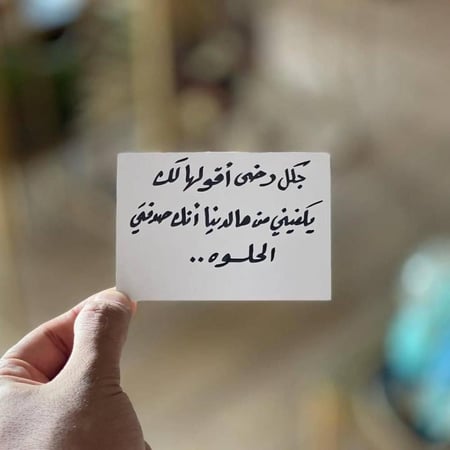 بكل رضى أقولها لك
يكفيني من هالدنيا أنك صدفتي
الحلوه ..